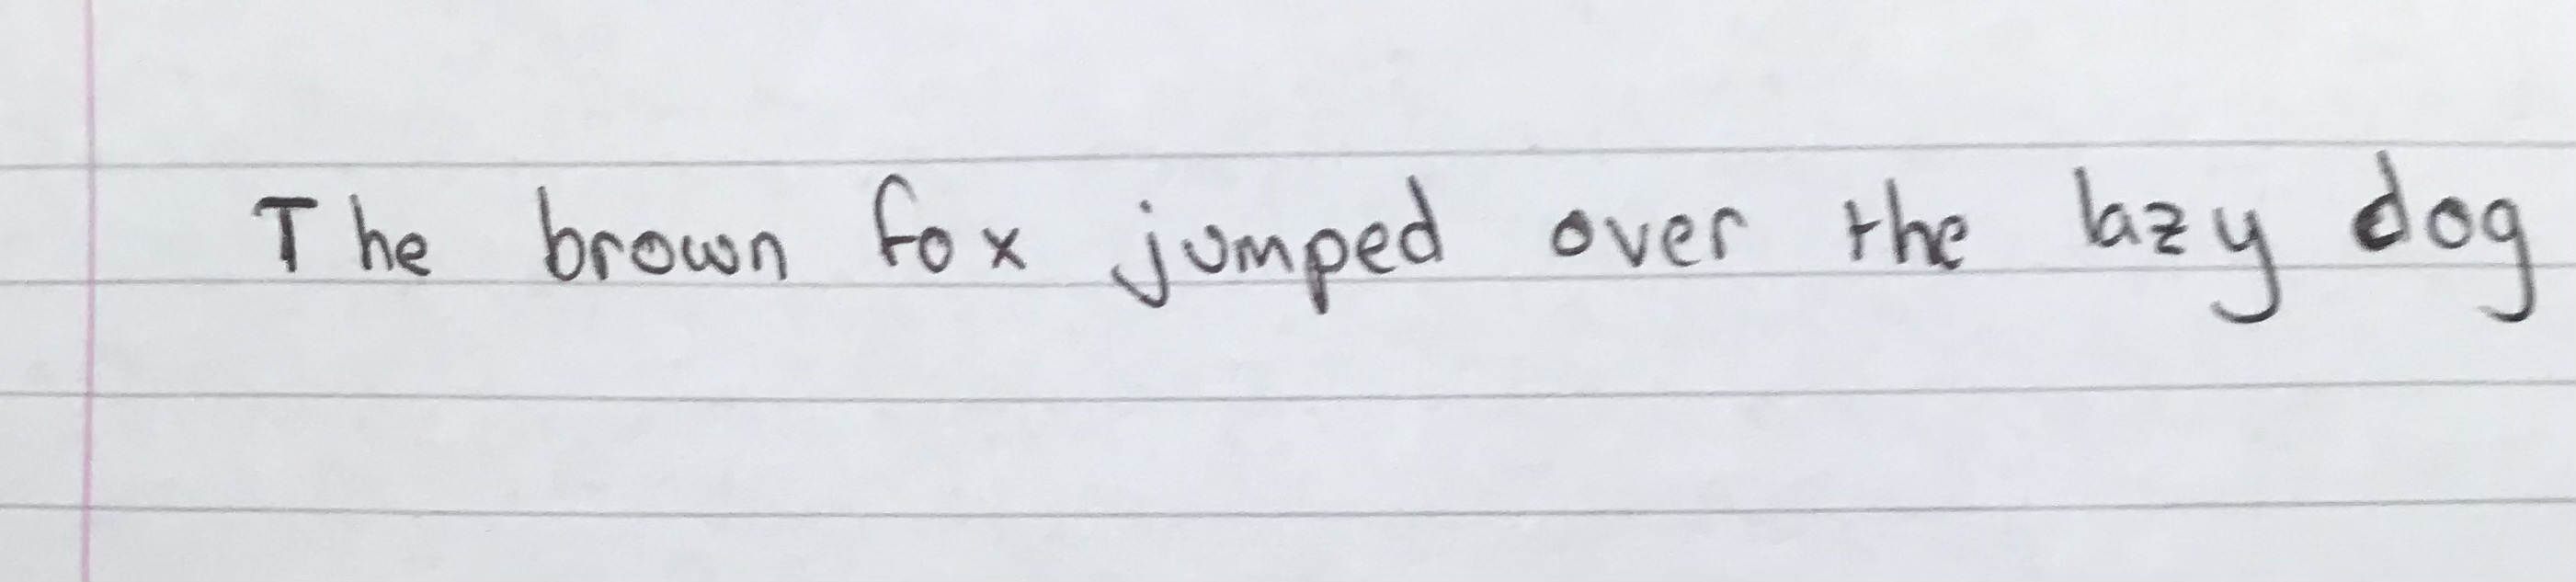 The brown fox jumped over the lazy dog